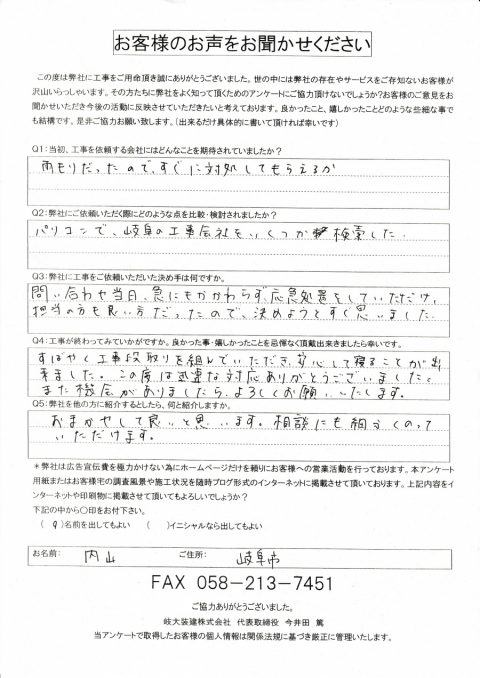 お客様のお声をお聞かせください
この度は弊社に工事をご用命頂き誠にありがとうございました。世の中には弊社の存在やサービスをご存知ないお客様が
沢山いらっしゃいます。その方たちに弊社をよく知って頂くためのアンケートにご協力頂けないでしょうか?お客様のご意見をお
聞かせいただき今後の活動に反映させていただきたいと考えております。良かったこと、嬉しかったことどのような些細な事で
も結構です。是非ご協力お願い致します。(出来るだけ具体的に書いて頂ければ幸いです)
Q1:当初、工事を依頼する会社にはどんなことを期待されていましたか?
雨もりだったので、すぐに対処してもらえるか
Q2:弊社にご依頼いただく際にどのような点を比較・検討されましたか?
パソコンで、岐阜の工事会社をいくつか検索した。
Q3:弊社に工事をご依頼いただいた決め手は何ですか。
問い合わせ当日、急にもかかわらず、応急処置をしていただけ、
担当の方も良い方だったので、決めようとすぐ思いました。
Q4:工事が終わってみていかがですか。良かった事・嬉しかった事を忌憚なく頂戴出来ましたら幸いです。
すばやく工事段取りを組んでいただき、安心して寝ることが出
来ました。この度は迅速な対応ありがとうございました。
また機会がありましたら、よろしくお願いいたします。
Q5:弊社を他の方に紹介するとしたら、何と紹介しますか。
おまかせして良いと思います。相談にも細かくのって
いただけます。
*弊社は広告宣伝費を極力かけない為にホームページだけを頼りにお客様への営業活動を行っております。本アンケート
用紙またはお客様宅の調査風景や施工状況を随時ブログ形式のインターネットに掲載させて頂いております。上記内容をイ
ンターネットや印刷物に掲載させて頂いてもよろしいでしょうか?
下記の中から〇印をお付下さい。
( )名前を出してもよい ( )イニシャルなら出してもよい
お名前: 内山 ご住所: 岐阜市
FAX 058-213-7451
ご協力ありがとうございました。
岐大装建株式会社 代表取締役 今井田 篤
当アンケートで取得したお客様の個人情報は関係法規に基づき厳正に管理いたします。